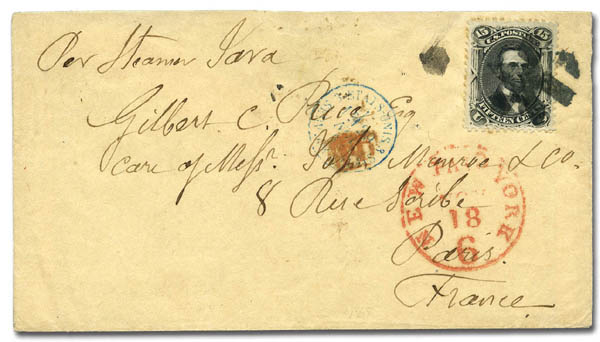 Per Steamer Java
15 U.S. POSTAGE 15
U FIFTEEN CE
Gilbert C. Esq
Care of Messr. John Munroe & Co.
8 Rue Scribe
Paris.
France
NEW PAID YORK
18
6